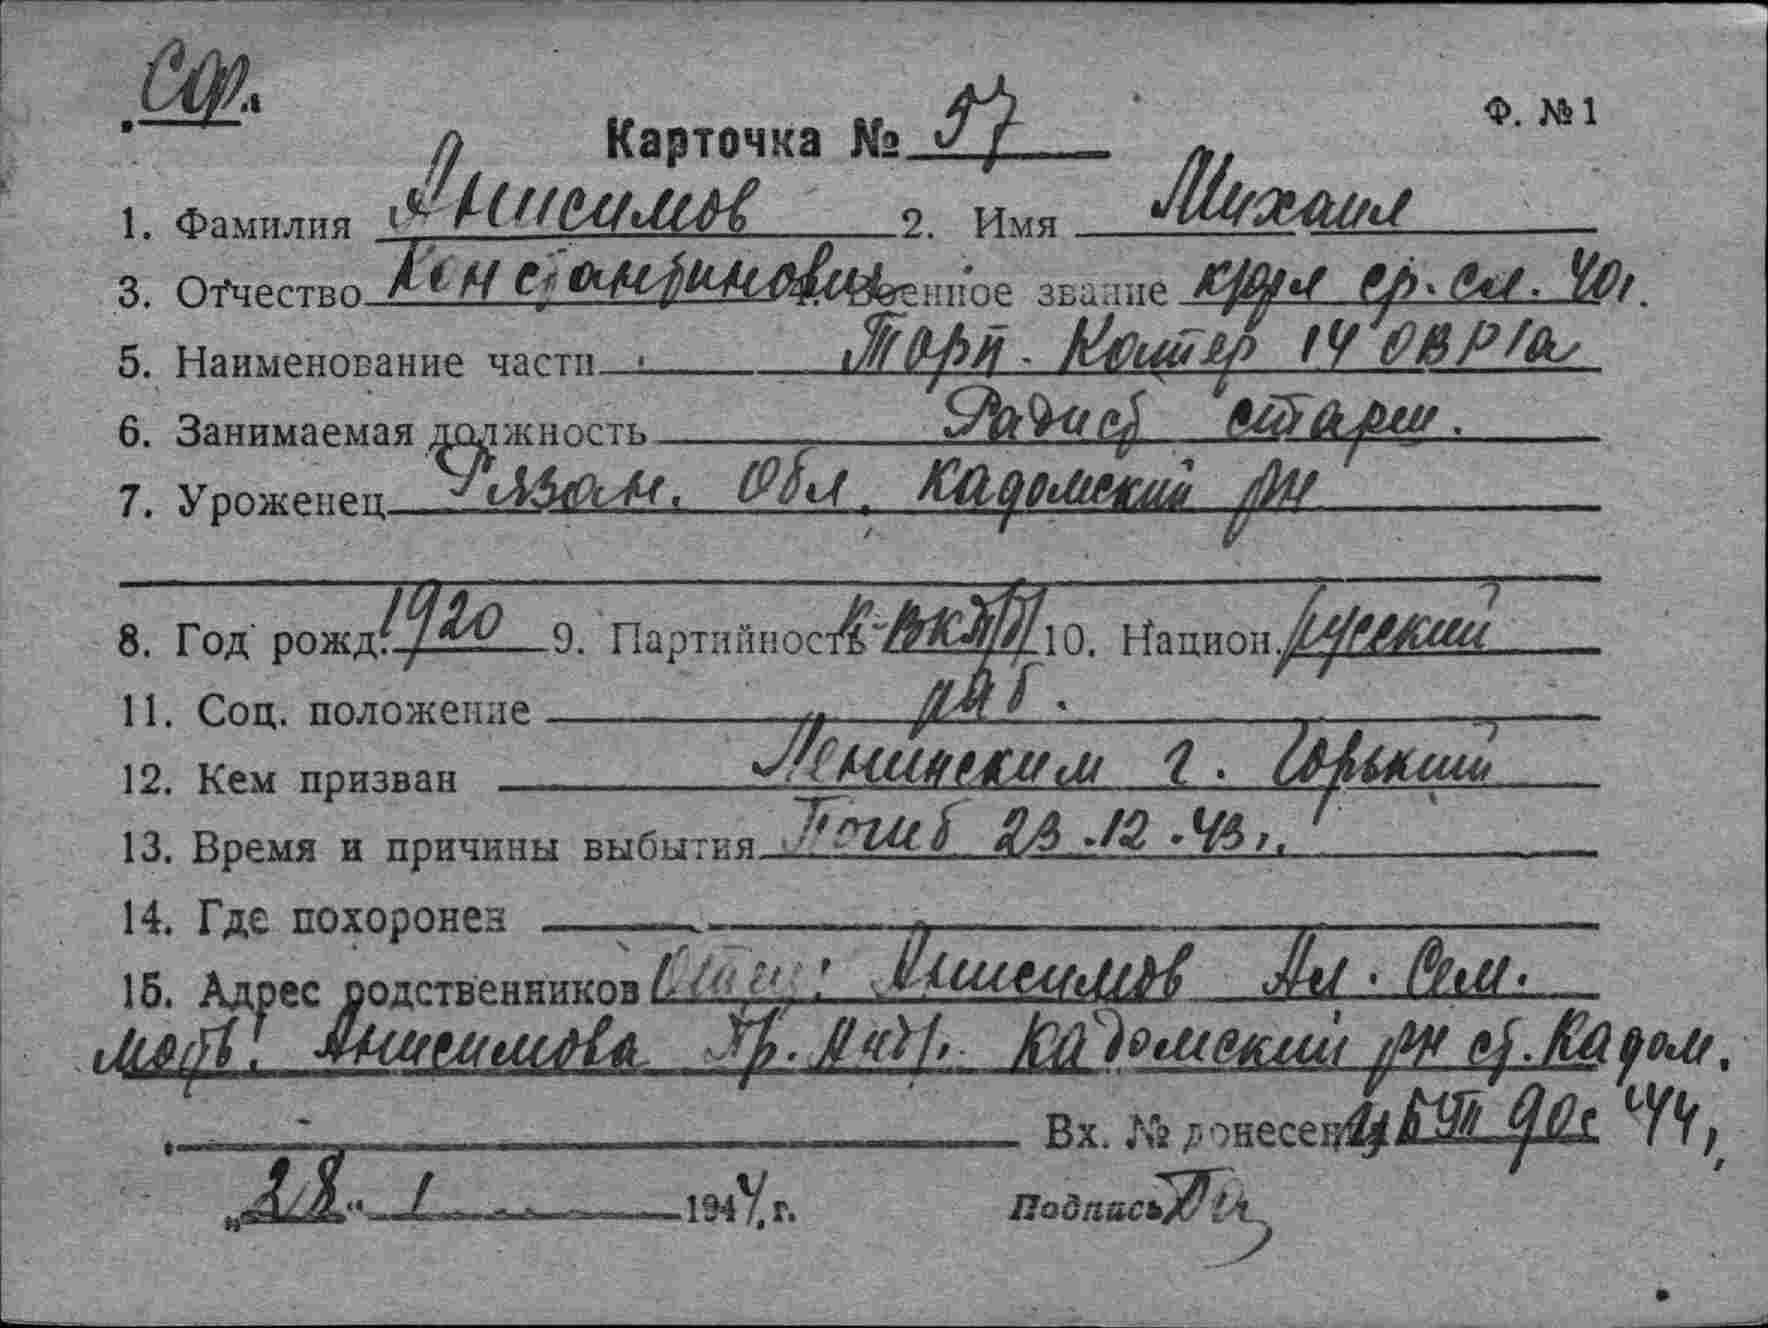 Сф.
Карточка № 57
Ф. № 1
1. Фамилия Анисимов 2. Имя Михаил
3. Отчество Константинович Военное звание кр-фл ср. сл. 40г.
5. Наименование части Торп. Катер 14 ОВР'а
6. Занимаемая должность Радист старш.
7. Уроженец Рязан. Обл. Кадомский рн
8. Год рожд. 1920 9. Партийность К-ВКП/б/ 10. Национ. русский
11. Соц. положение раб.
12. Кем призван Ленинским г. Горький
13. Время и причины выбытия Погиб 23.12.43г.
14. Где похоронен
15. Адрес родственников Отец: Анисимов Ал. Сем.
мать: Анисимова Пр. Кадомский рн ст. Кадом.
Вх. № донесения 90с 44г.
„28" 1 1944 г. Подпись